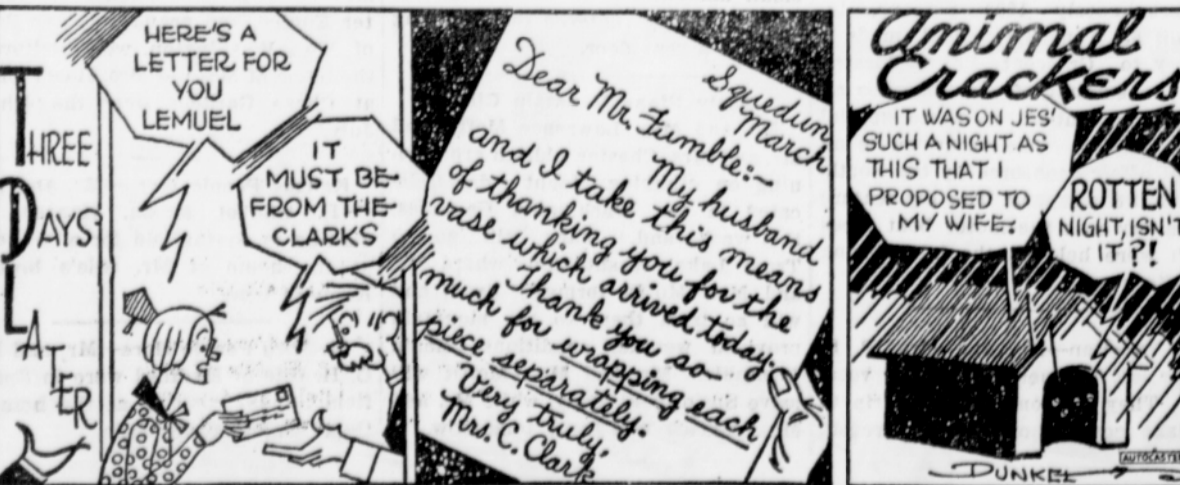 THREE
DAYS
LATER
HERE'S A
LETTER FOR
YOU
LEMUEL
IT
MUST BE
FROM THE
CLARKS
Squedun
March
Dear Mr. Fumble:-
My husband
and I take this means
of thanking you for the
vase which arrived today.
Thank you so
much for wrapping each
piece separately.
Very truly,
Mrs. C. Clark
Animal
Crackers
IT WAS ON JES'
SUCH A NIGHT AS
THIS THAT I
PROPOSED TO
MY WIFE-
ROTTEN
NIGHT, ISN'T
IT?!
DUNKEL
AUTOCASTER